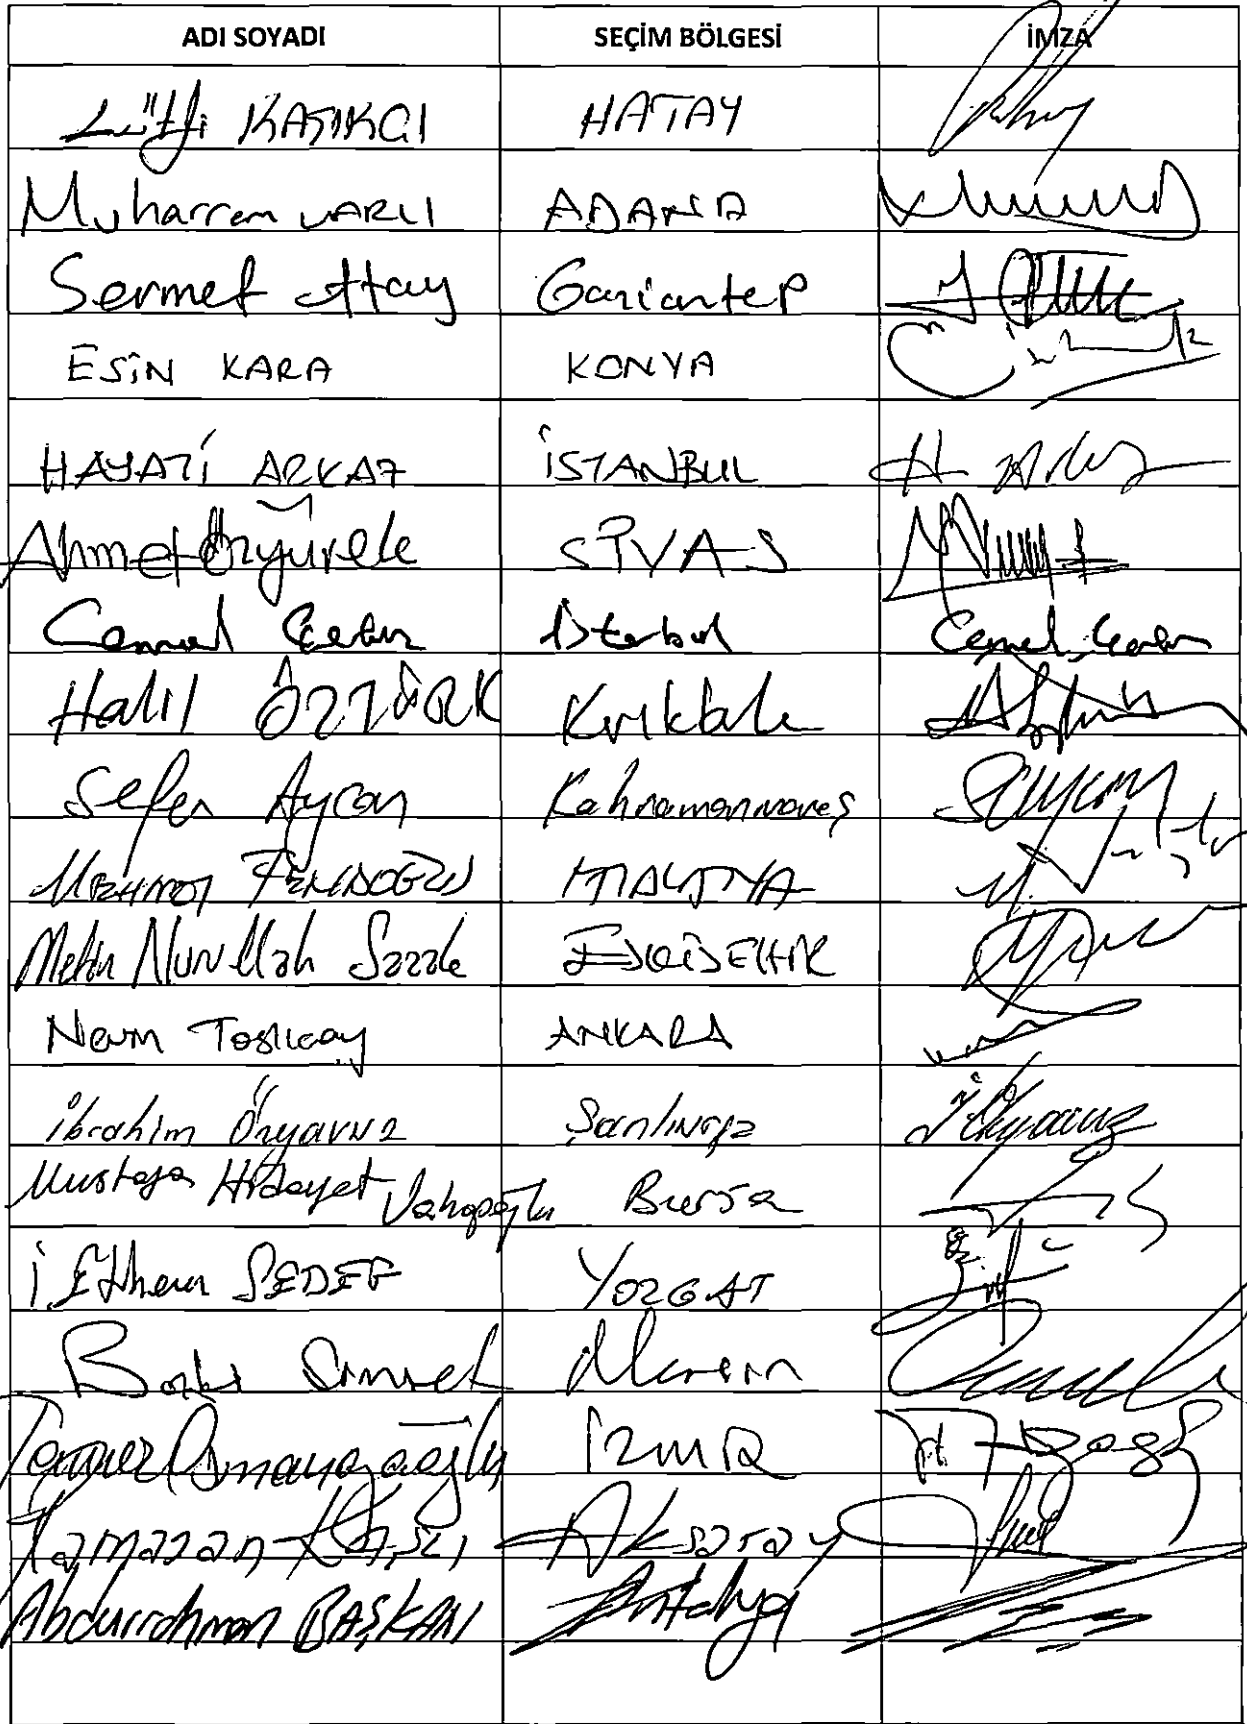 ADI SOYADI SEÇİM BÖLGESİ İMZA
Lütfi KAŞIKÇI HATAY
Muharrem VARLI ADANA
Sermet Atay Gaziantep
ESİN KARA KONYA
HAYATİ ARKAZ İSTANBUL
Ahmet Özyürek SİVAS
Cemal Çetin İstanbul Cemal Çetin
Halil ÖZTÜRK Kırıkkale
Sefer Aycan Kahramanmaraş
MEHMET FENDOĞLU MALATYA
Metin Nurullah Sazak ESKİŞEHİR
Nevin Taşlıçay ANKARA
İbrahim Özyavuz Şanlıurfa
Mustafa Hidayet Vahapoğlu Bursa
İ. Ethem SEDEF YOZGAT
Baki Şimşek Mersin
Tamer Osmanağaoğlu İZMİR
Ramazan Kaşlı Aksaray
Abdurrahman BAŞKAN Antalya